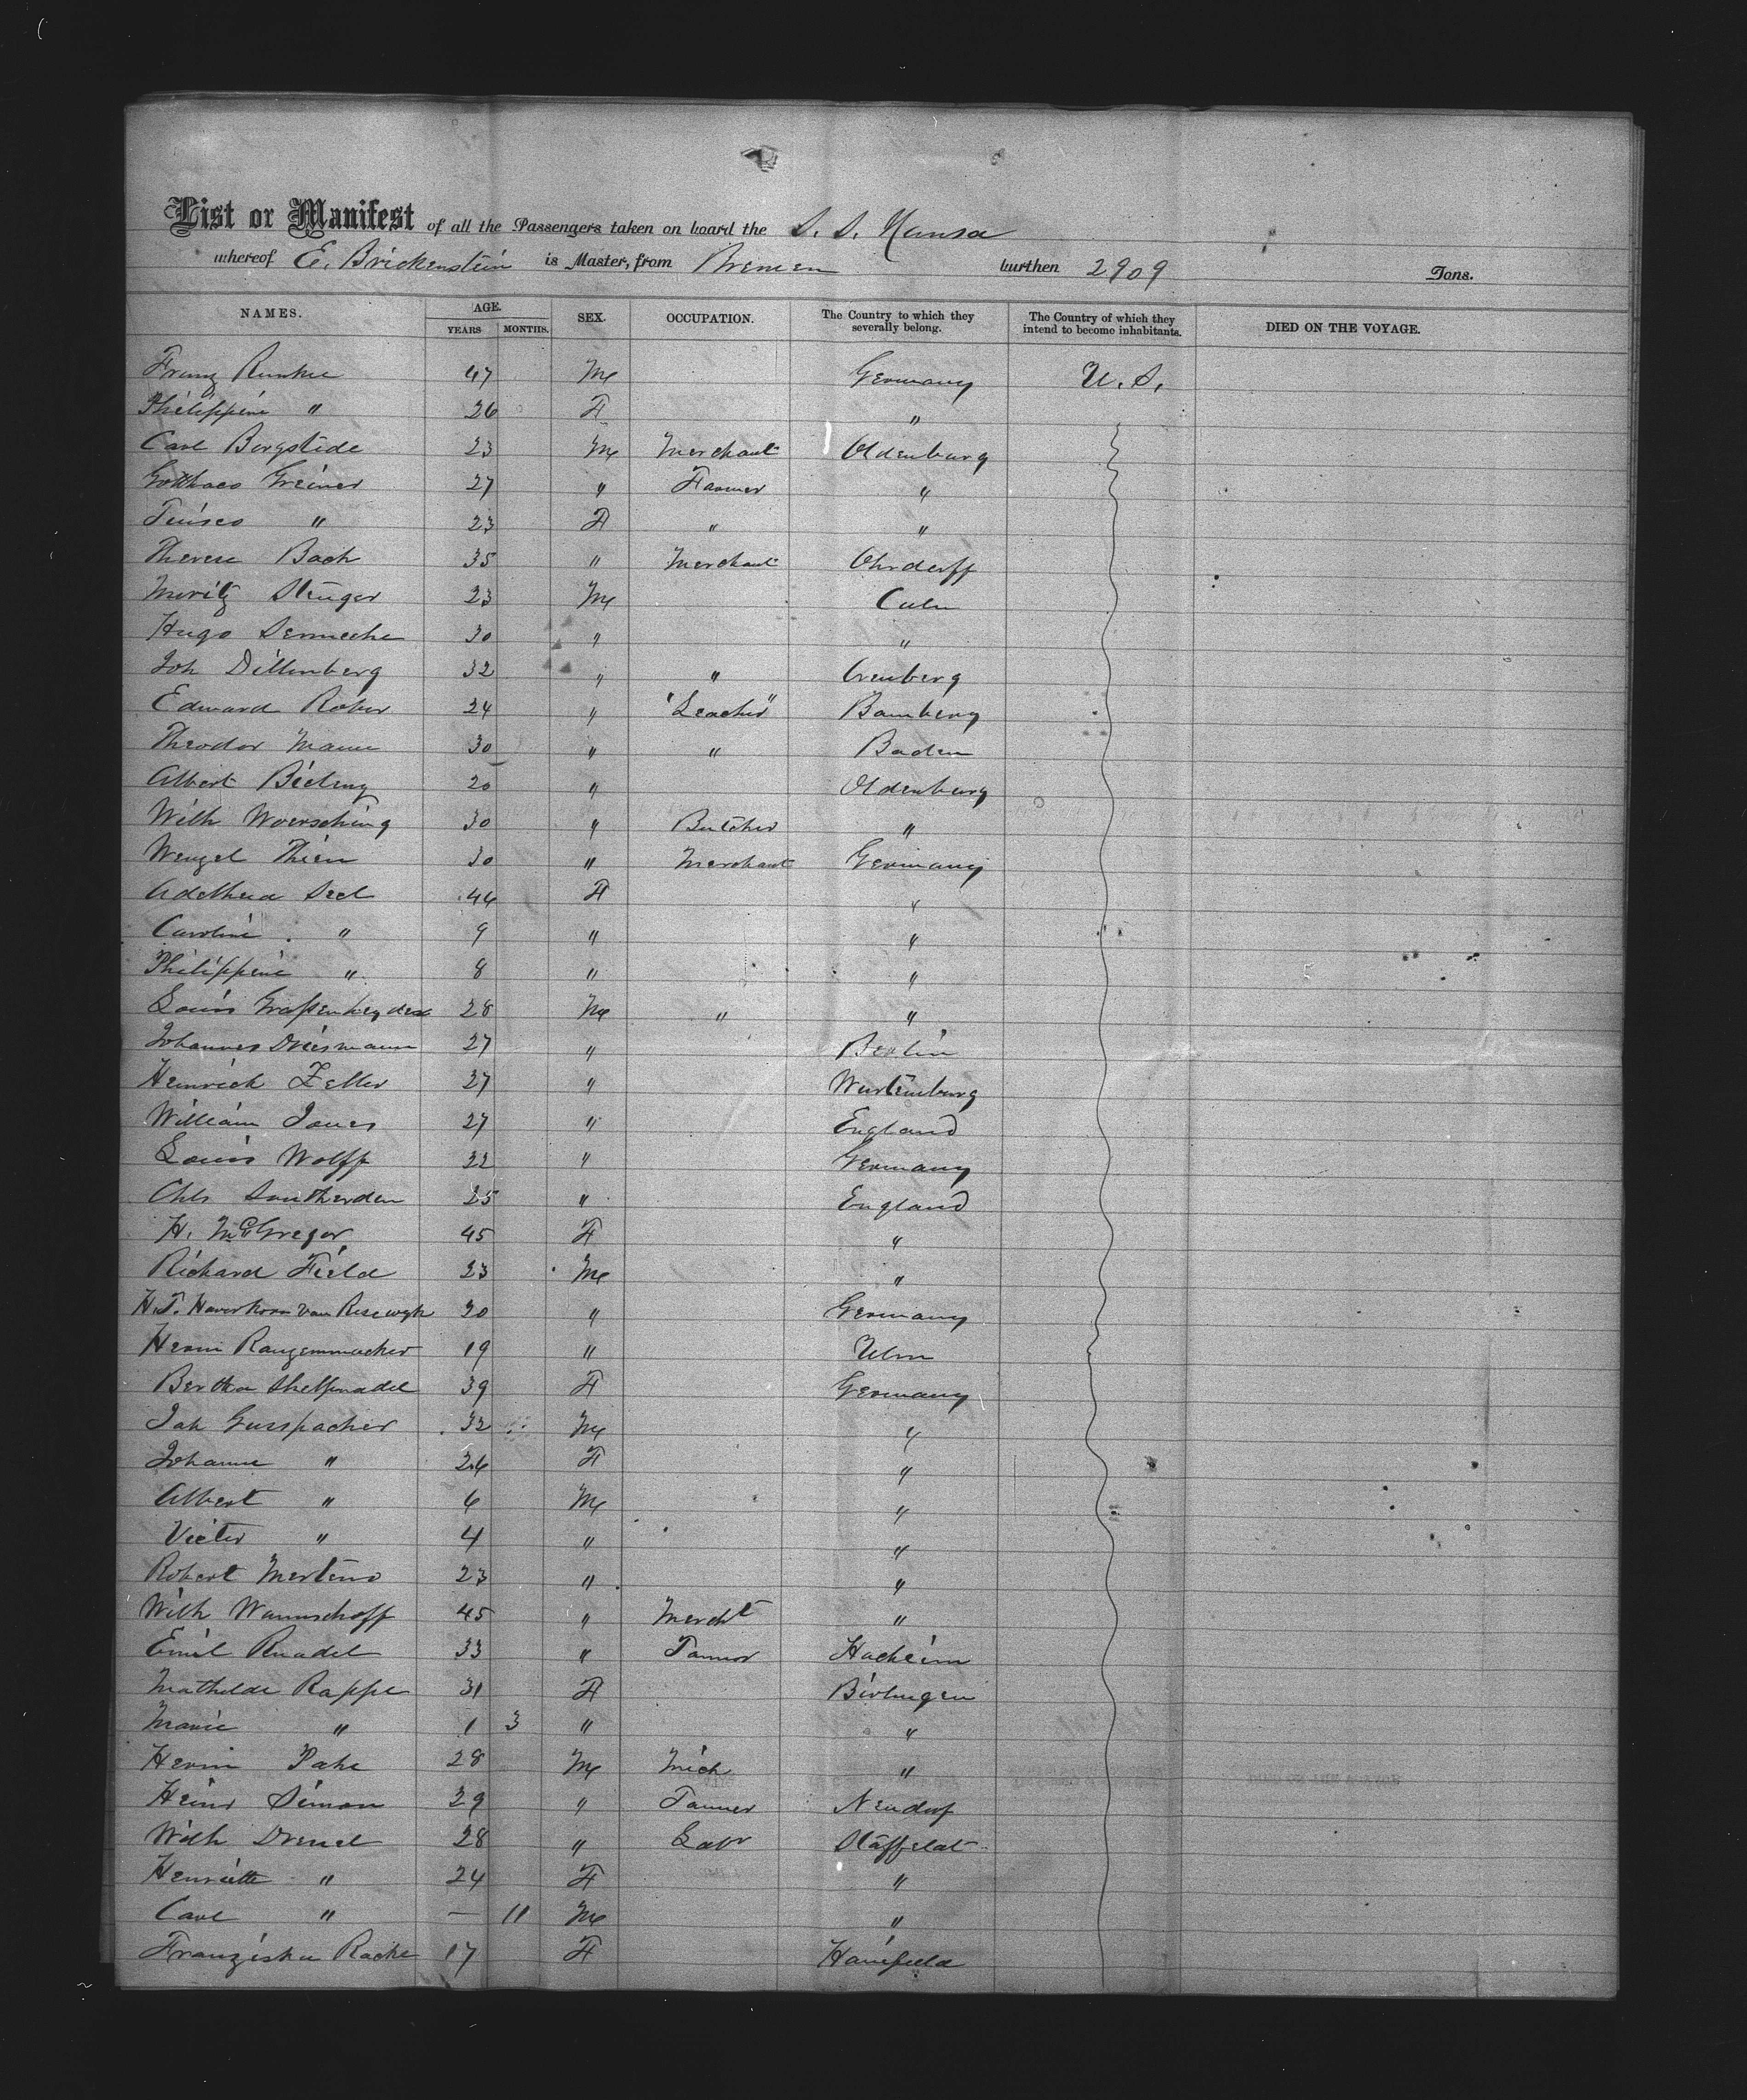 List or Manifest of all the Passengers taken on board the S. S. Hansa
whereof E. Brickenstein is Master, from Bremen burthen 2909 Tons.
NAMES. AGE. YEARS MONTHS. SEX. OCCUPATION. The Country to which they severally belong. The Country of which they intend to become inhabitants. DIED ON THE VOYAGE.
Franz 47 M Germany U. S.
Philippine " 26 F "
Carl Borgstede 23 M Merchant Oldenburg
Greiner 27 " Farmer "
" 23 F " "
Therese Bach 35 " Merchant Ohrdorff
Moritz Stenger 23 M Culm
Hugo 30 " "
Joh Dillenberg 32 " "
Edward Rober 24 " Bamberg
Theodor Mann 30 " " Baden
Albert Bieling 20 " Oldenburg
Wilh Woersching 30 " Butcher "
Wenzel Thien 30 " Merchant Germany
Seel 44 F "
Caroline " 9 " "
Philippine " 8 " "
Louis 28 M " "
Johannes Driesmann 27 " Berlin
Heinrich Zeller 27 " Wurtemburg
William Jones 27 " England
Louis Wolff 22 " Germany
Chls Southerden 25 " England
H. McGregor 45 F "
Richard Field 23 M "
H. T. Haverkorn van Rysewyk 30 " Germany
Herm 19 " Ulm
Bertha 39 F Germany
Jak Gusspacher 32 M "
Johanne " 26 F "
Albert " 6 M "
Victor " 4 " "
Robert Mertens 23 " "
Wilh Wannschaff 45 " Mercht "
Emil Knadel 33 " Tanner Hacheim
Mathilde Rappe 31 F
Marie " 1 3 " "
Herm Pahe 28 M Mich "
Heinr Simon 29 " Tanner Neudorf
Wilh 28 " Labr
Henriette " 24 F "
Carl " — 11 M "
Franziska Rache 17 F